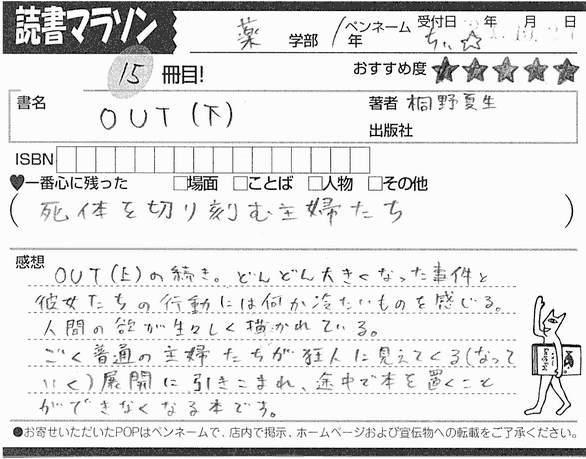 読書マラソン
薬 学部 / 年 ペンネーム ちぃ☆ 受付日 年 月 日
15 冊目! おすすめ度 ★★★★★
書名 OUT(下) 著者 桐野夏生
出版社
ISBN
♥一番心に残った □場面 □ことば □人物 □その他
(死体を切り刻む主婦たち)
感想
OUT(上)の続き。どんどん大きくなった事件と
彼女たちの行動には何か冷たいものを感じる。
人間の欲が生々しく描かれている。
ごく普通の主婦たちが狂人に見えてくる(なって
いく)展開に引きこまれ、途中で本を置くこと
ができなくなる本です。
●お寄せいただいたPOPはペンネームで、店内で掲示、ホームページおよび宣伝物への転載をご了承ください。